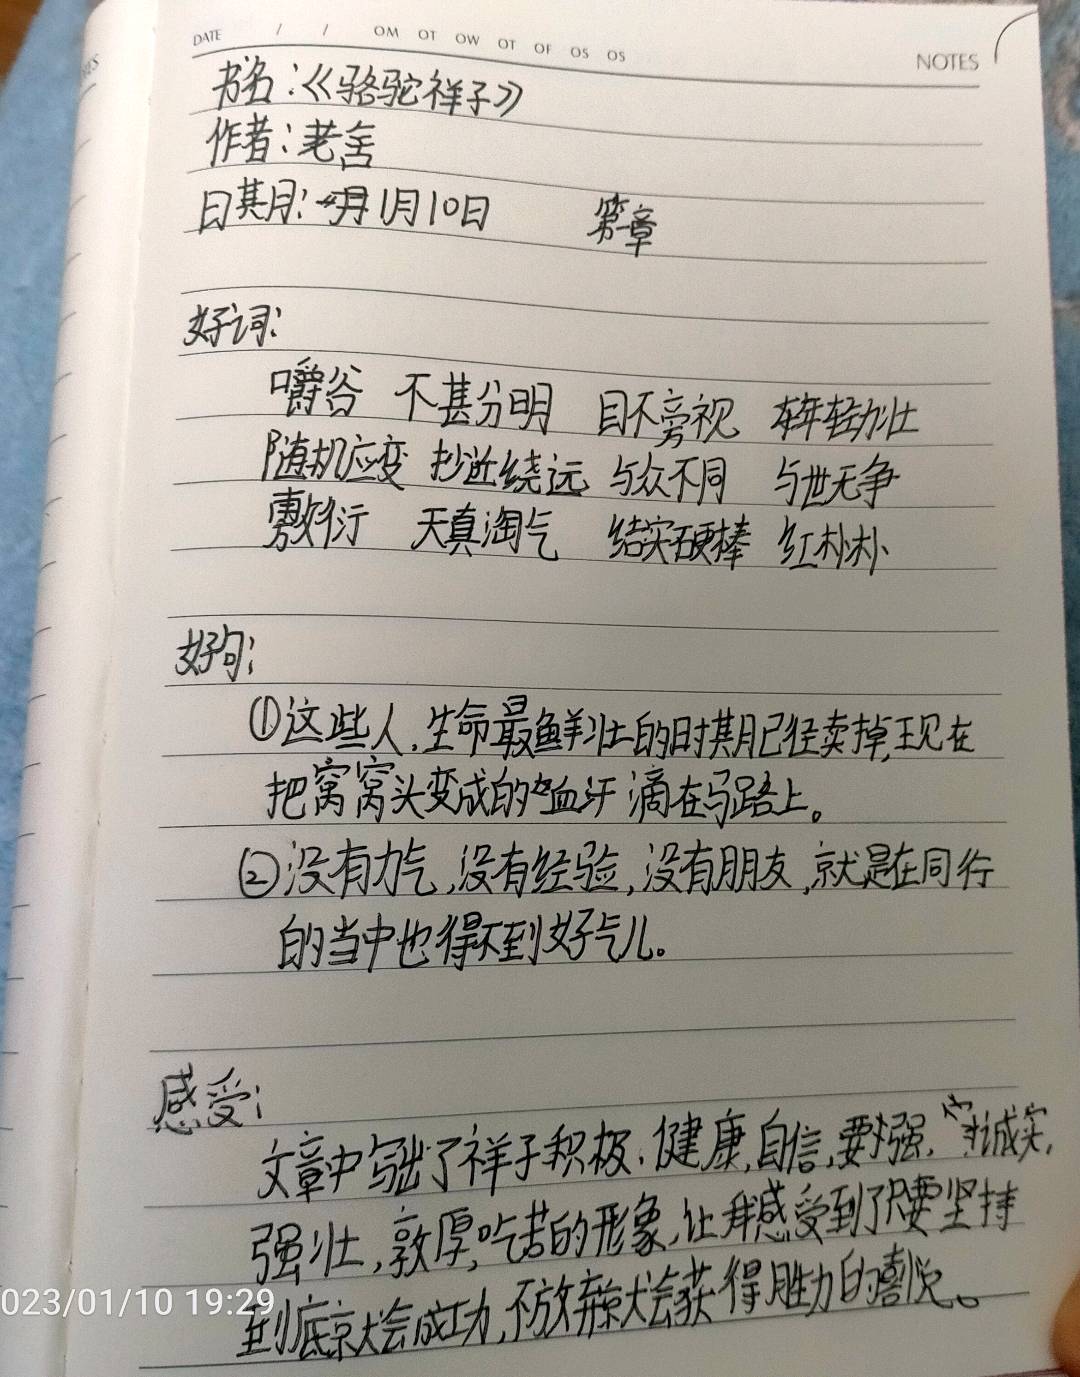 DATE / / OM OT OW OT OF OS OS
NOTES
书名:《骆驼祥子》
作者:老舍
日期:1月10日 第一章
好词:
嚼谷 不甚分明 目不旁视 年轻力壮
随机应变 抄近绕远 与众不同 与世无争
敷衍 天真淘气 结实硬棒 红扑扑
好句:
①这些人,生命最鲜壮的时期已经卖掉,现在
把窝窝头变成的血汗滴在马路上。
②没有力气,没有经验,没有朋友,就是在同行
的当中也得不到好气儿。
感受:
文章中写出了祥子积极,健康,自信,要强,诚实,
强壮,敦厚,吃苦的形象,让我感受到了只要坚持
到底就会成功,不放弃就会获得胜利的喜悦。
023/01/10 19:29